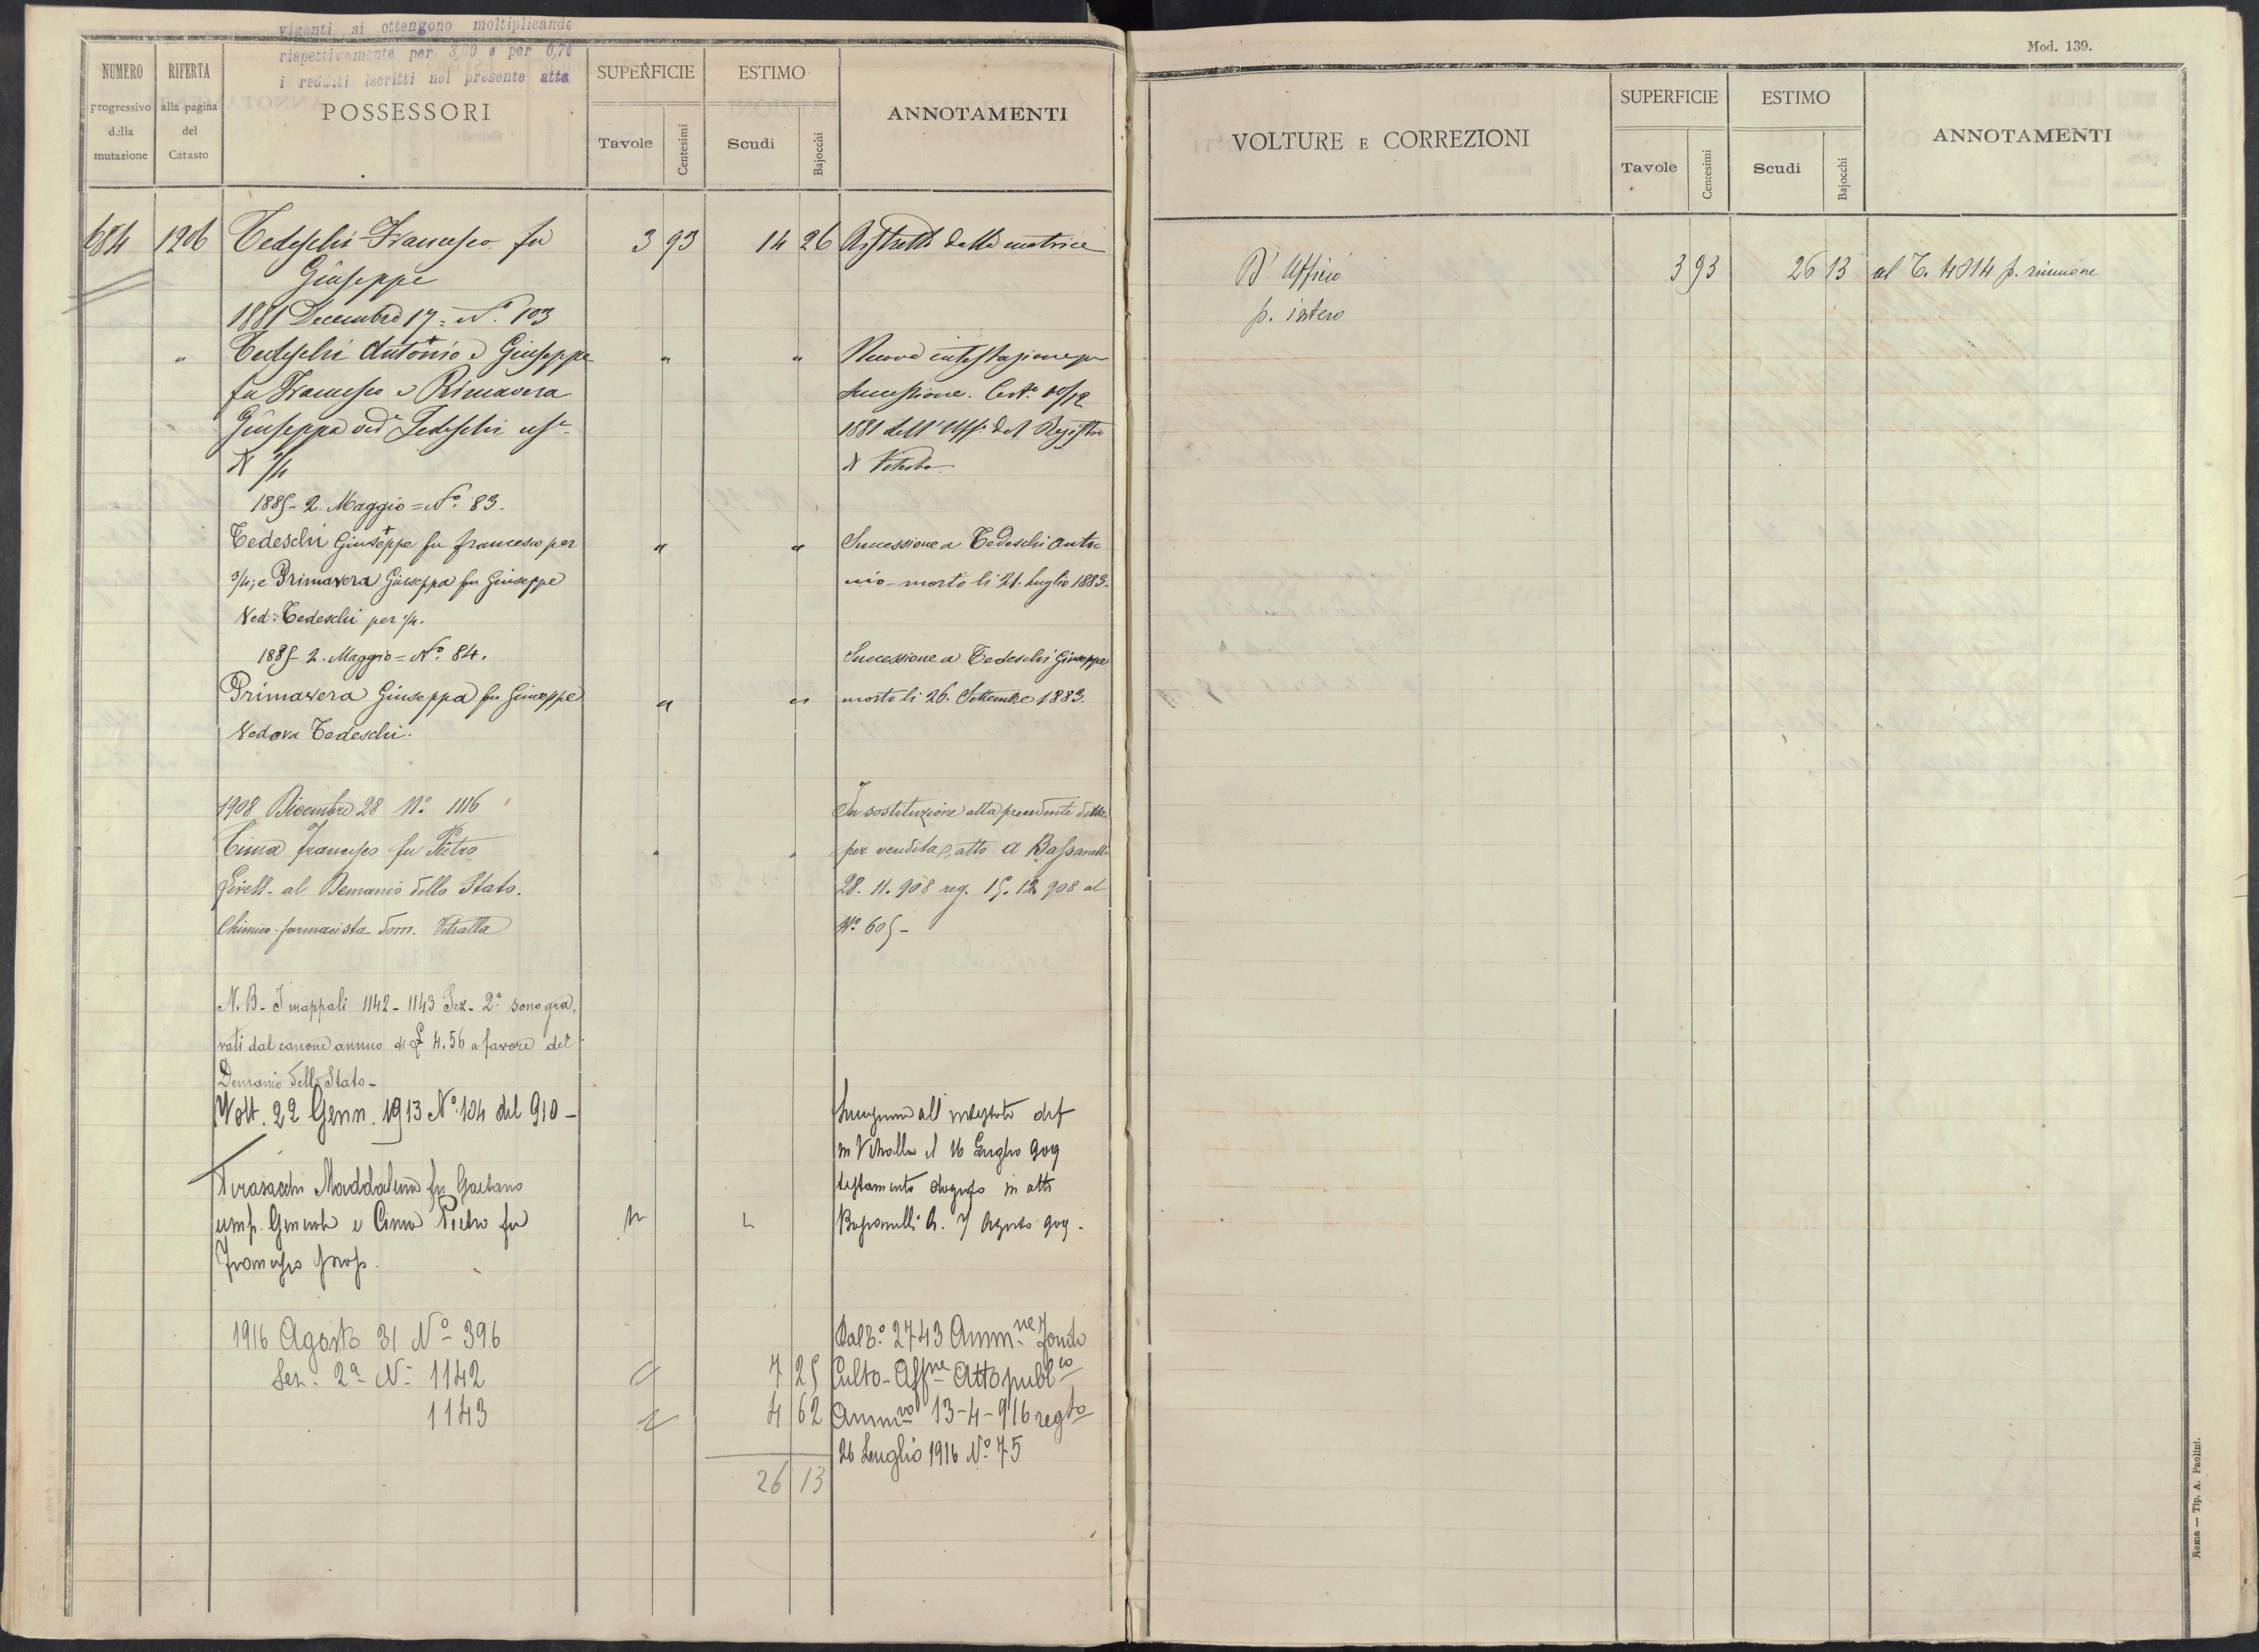 viganti si ottengono moltiplicando
rispettivamente per 3,00 e per 0,70
i redditi iscritti nel presente atto
NUMERO progressivo della mutazione
RIFERTA alla pagina del Catasto
POSSESSORI
SUPERFICIE
Tavole Centesimi
ESTIMO
Scudi Bajocchi
ANNOTAMENTI
684 1206 Tedeschi Francesco fu 3 93 14 26 Ristretto dalla matrice
Giuseppe
1881 Decembre 17 = N.º 103
" Tedeschi Antonio e Giuseppe " " Nuova intestazione per
fu Francesco e Primavera successione. Cert.º 10/12
Giuseppa ved.ª Tedeschi usª 1881 dell'Uff.º del Registro
di 1/4 di Viterbo
1885 - 2. Maggio = Nº. 83.
Tedeschi Giuseppe fu francesco per " " Successione a Tedeschi Anto-
3/4; e Primavera Giuseppa fu Giuseppe nio - morto li 21. Luglio 1883.
Ved: Tedeschi per 1/4.
1885 - 2. Maggio = Nº. 84. Successione a Tedeschi Giuseppe
Primavera Giuseppa fu Giuseppe " " morto li 26. Settembre 1883.
Vedova Tedeschi.
1908 Dicembre 28 Nº 1116 In sostituzione alla precedente ditta
Cima Francesco fu Pietro " " per vendita, atto A Bassanelli
Livell. al Demanio dello Stato. 28. 11. 908 reg. 15. 12 908 al
Chimico-farmacista dom. Vetralla Nº 605 -
N. B. - I mappali 1142 - 1143 Sez. 2ª sono gra-
vati dal canone annuo di £ 4.56 a favore del
Demanio dello Stato -
Volt. 22 Genn. 1913 Nº 104 del 910 - Successione all'intestato def
in Vetralla il 16 Luglio 909
Maddalena fu Gaetano testamento in atti
e Cima Pietro fu Bassanelli A. 7 Agosto 909.
Francesco prop.
1916 Agosto 31 Nº 396 Dal Tº. 2743 Ammne Fondo
Sez. 2ª Nº 1142 " 7 25 Culto - Affne Atto pubblco
1143 " 4 62 Ammvo 13-4-916 regto
26 Luglio 1916 Nº 75
26 13
Mod. 139.
VOLTURE E CORREZIONI
SUPERFICIE
Tavole Centesimi
ESTIMO
Scudi Bajocchi
ANNOTAMENTI
D'Ufficio 3 93 26 13 al T. 4814 p. riunione
p. intero
Roma — Tip. A. Paolini.